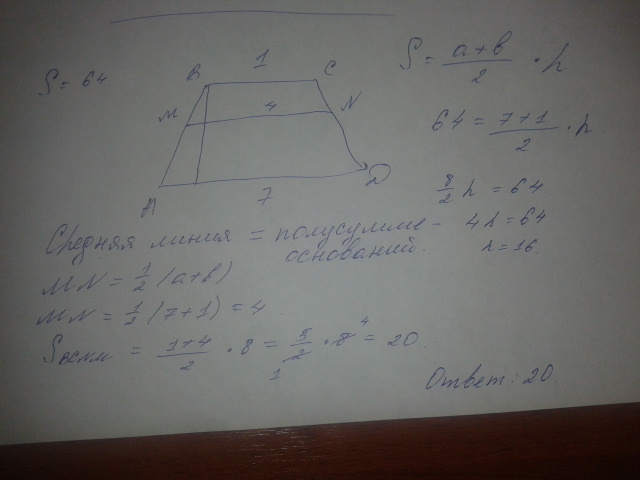 S = 64
B 1 C
M 4 N
A 7 D
S = (a+b)/2 · h
64 = (7+1)/2 · h.
8/2 h = 64
4h = 64
h = 16.
Средняя линия = полусумме
оснований.
MN = 1/2 (a+b)
MN = 1/2 (7+1) = 4
Sвсмн = (1+4)/2 · 8 = 5/2 1 · 8 4 = 20.
Ответ: 20.